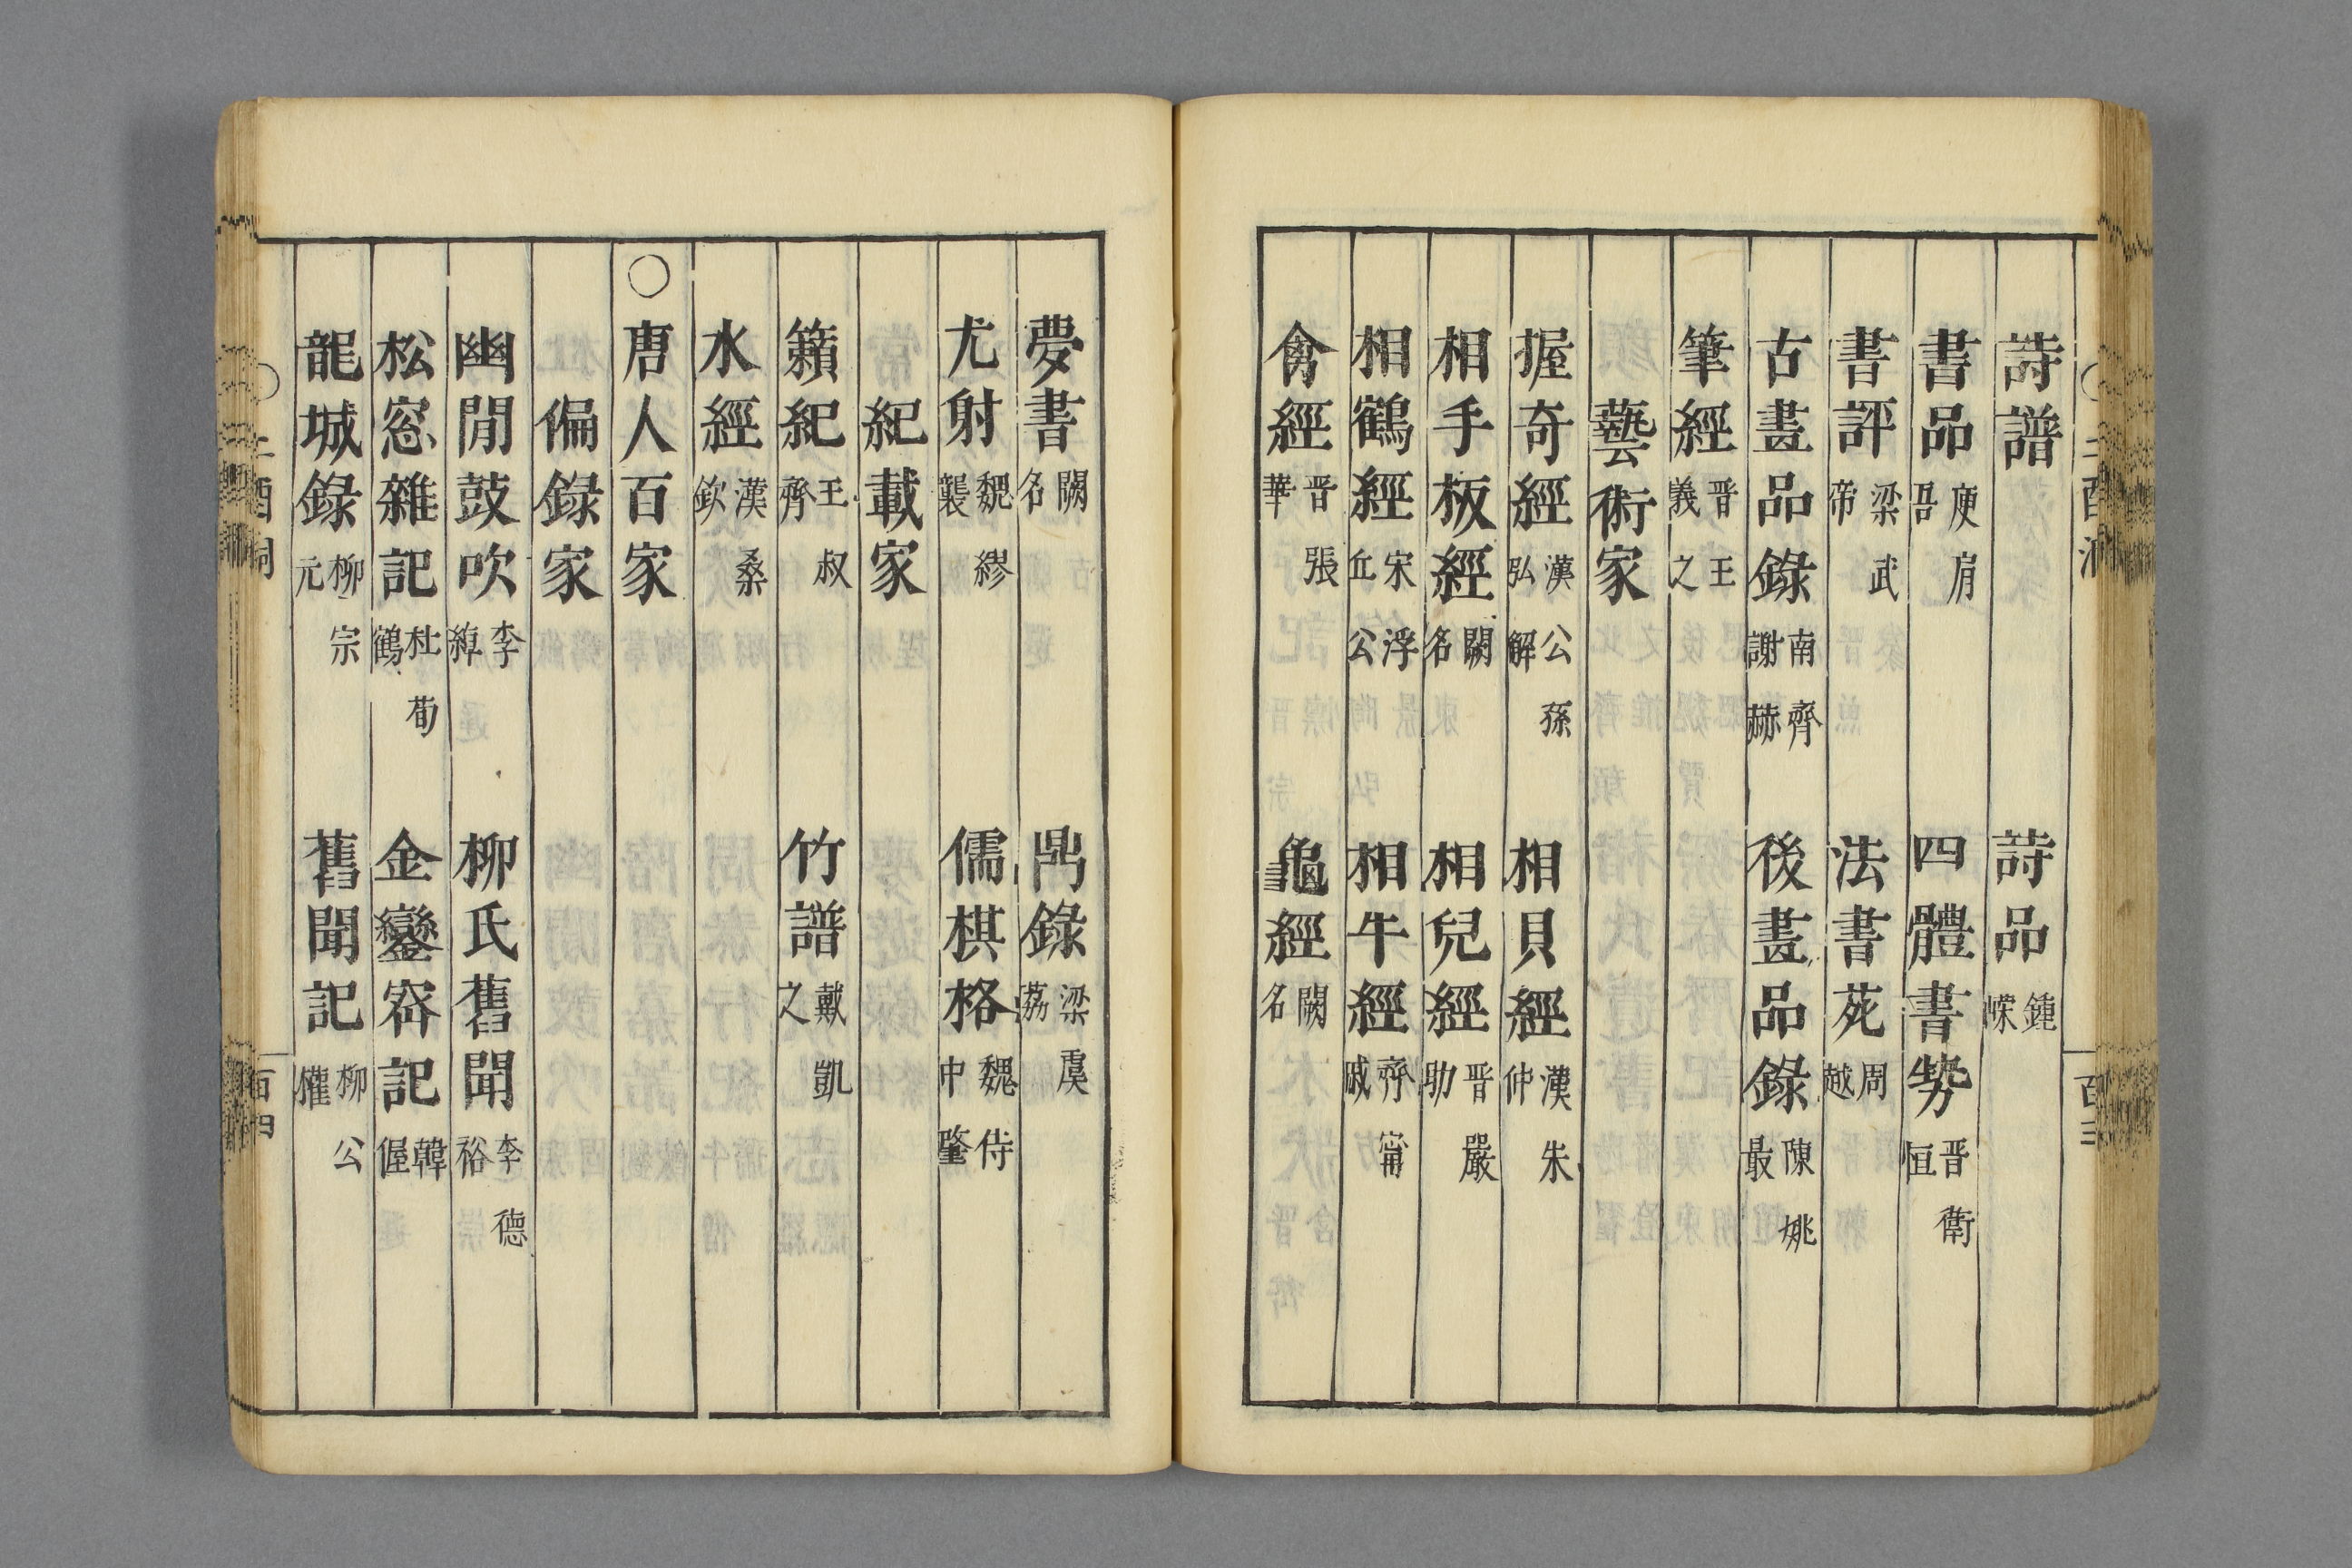 詩譜 詩品 鍾嶸
書品 庾肩吾 四體書勢 晋衛恒
書評 梁武帝 法書苑 周越
古畫品錄 南齊謝赫 後畫品錄 陳姚最
筆經 晋王羲之
藝術家
握奇經 漢公孫弘解 相貝經 漢朱仲
相手板經 闕名 相兒經 晋嚴助
相鶴經 宋浮丘公 相牛經 齊甯戚
禽經 晋張華 龜經 闕名
夢書 闕名 鼎錄 梁虞荔
尤射 魏繆襲 儒棋格 魏侍中肇
紀載家
籟紀 王叔齊 竹譜 戴凱之
水經 漢桑欽
〇唐人百家
偏錄家
幽閒鼓吹 李綽 柳氏舊聞 李德裕
松窓雜記 杜荀鶴 金鑾密記 韓偓
龍城錄 柳宗元 舊聞記 柳公權
百四